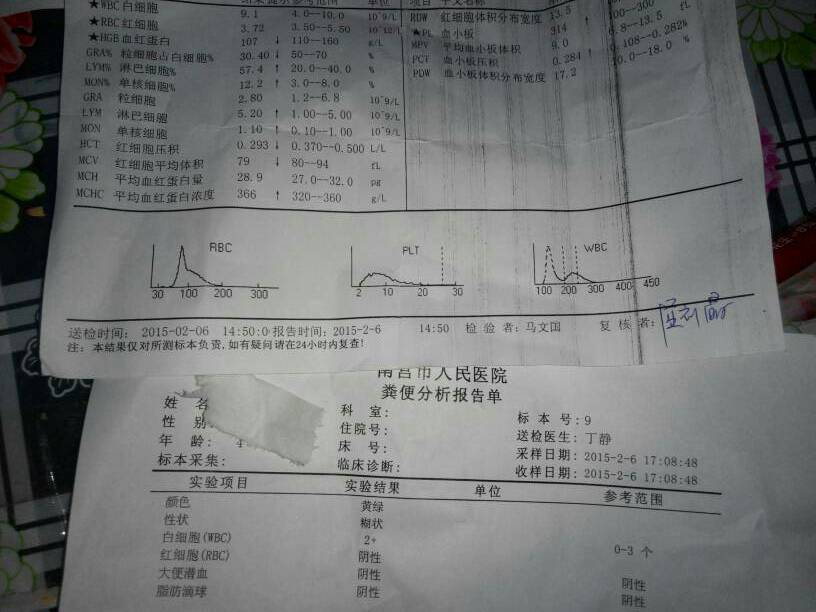 ★WBC 白细胞 9.1 4.0--10.0 10^9/L
★RBC 红细胞 3.72 3.50--5.50 10^12/L
★HGB 血红蛋白 107 ↓ 110--160 g/L
GRA% 粒细胞占白细胞% 30.40 ↓ 50--70 %
LYM% 淋巴细胞% 57.4 ↑ 20.0--40.0 %
MON% 单核细胞% 12.2 ↑ 3.0--8.0 %
GRA 粒细胞 2.80 1.2--6.8 10^9/L
LYM 淋巴细胞 5.20 ↑ 1.00--5.00 10^9/L
MON 单核细胞 1.10 ↑ 0.10--1.00 10^9/L
HCT 红细胞压积 0.293 ↓ 0.370--0.500 L/L
MCV 红细胞平均体积 79 ↓ 80--94 fL
MCH 平均血红蛋白量 28.9 27.0--32.0 pg
MCHC 平均血红蛋白浓度 366 ↑ 320--360 g/L
RDW 红细胞体积分布宽度 13.5
★PL 血小板 314 100--300
MPV 平均血小板体积 9.0 6.8--13.5 fL
PCT 血小板压积 0.284 ↑ 0.108--0.282%
PDW 血小板体积分布宽度 17.2 10.0--18.0 %
RBC
30 100 200 300
PLT
2 10 20 30
WBC
100 200 300 400 450
送检时间: 2015-02-06 14:50:0 报告时间: 2015-2-6 14:50 检验者: 马文国 复核者:
注: 本结果仅对所测标本负责,如有疑问请在24小时内复查!
南宫市人民医院
粪便分析报告单
姓名 科室: 标本号: 9
性别 住院号: 送检医生: 丁静
年龄: 床号: 采样日期: 2015-2-6 17:08:48
标本采集: 临床诊断: 收样日期: 2015-2-6 17:08:48
实验项目 实验结果 单位 参考范围
颜色 黄绿
性状 糊状
白细胞(WBC) 2+ 0-3 个
红细胞(RBC) 阴性
大便潜血 阴性 阴性
脂肪滴球 阴性 阴性